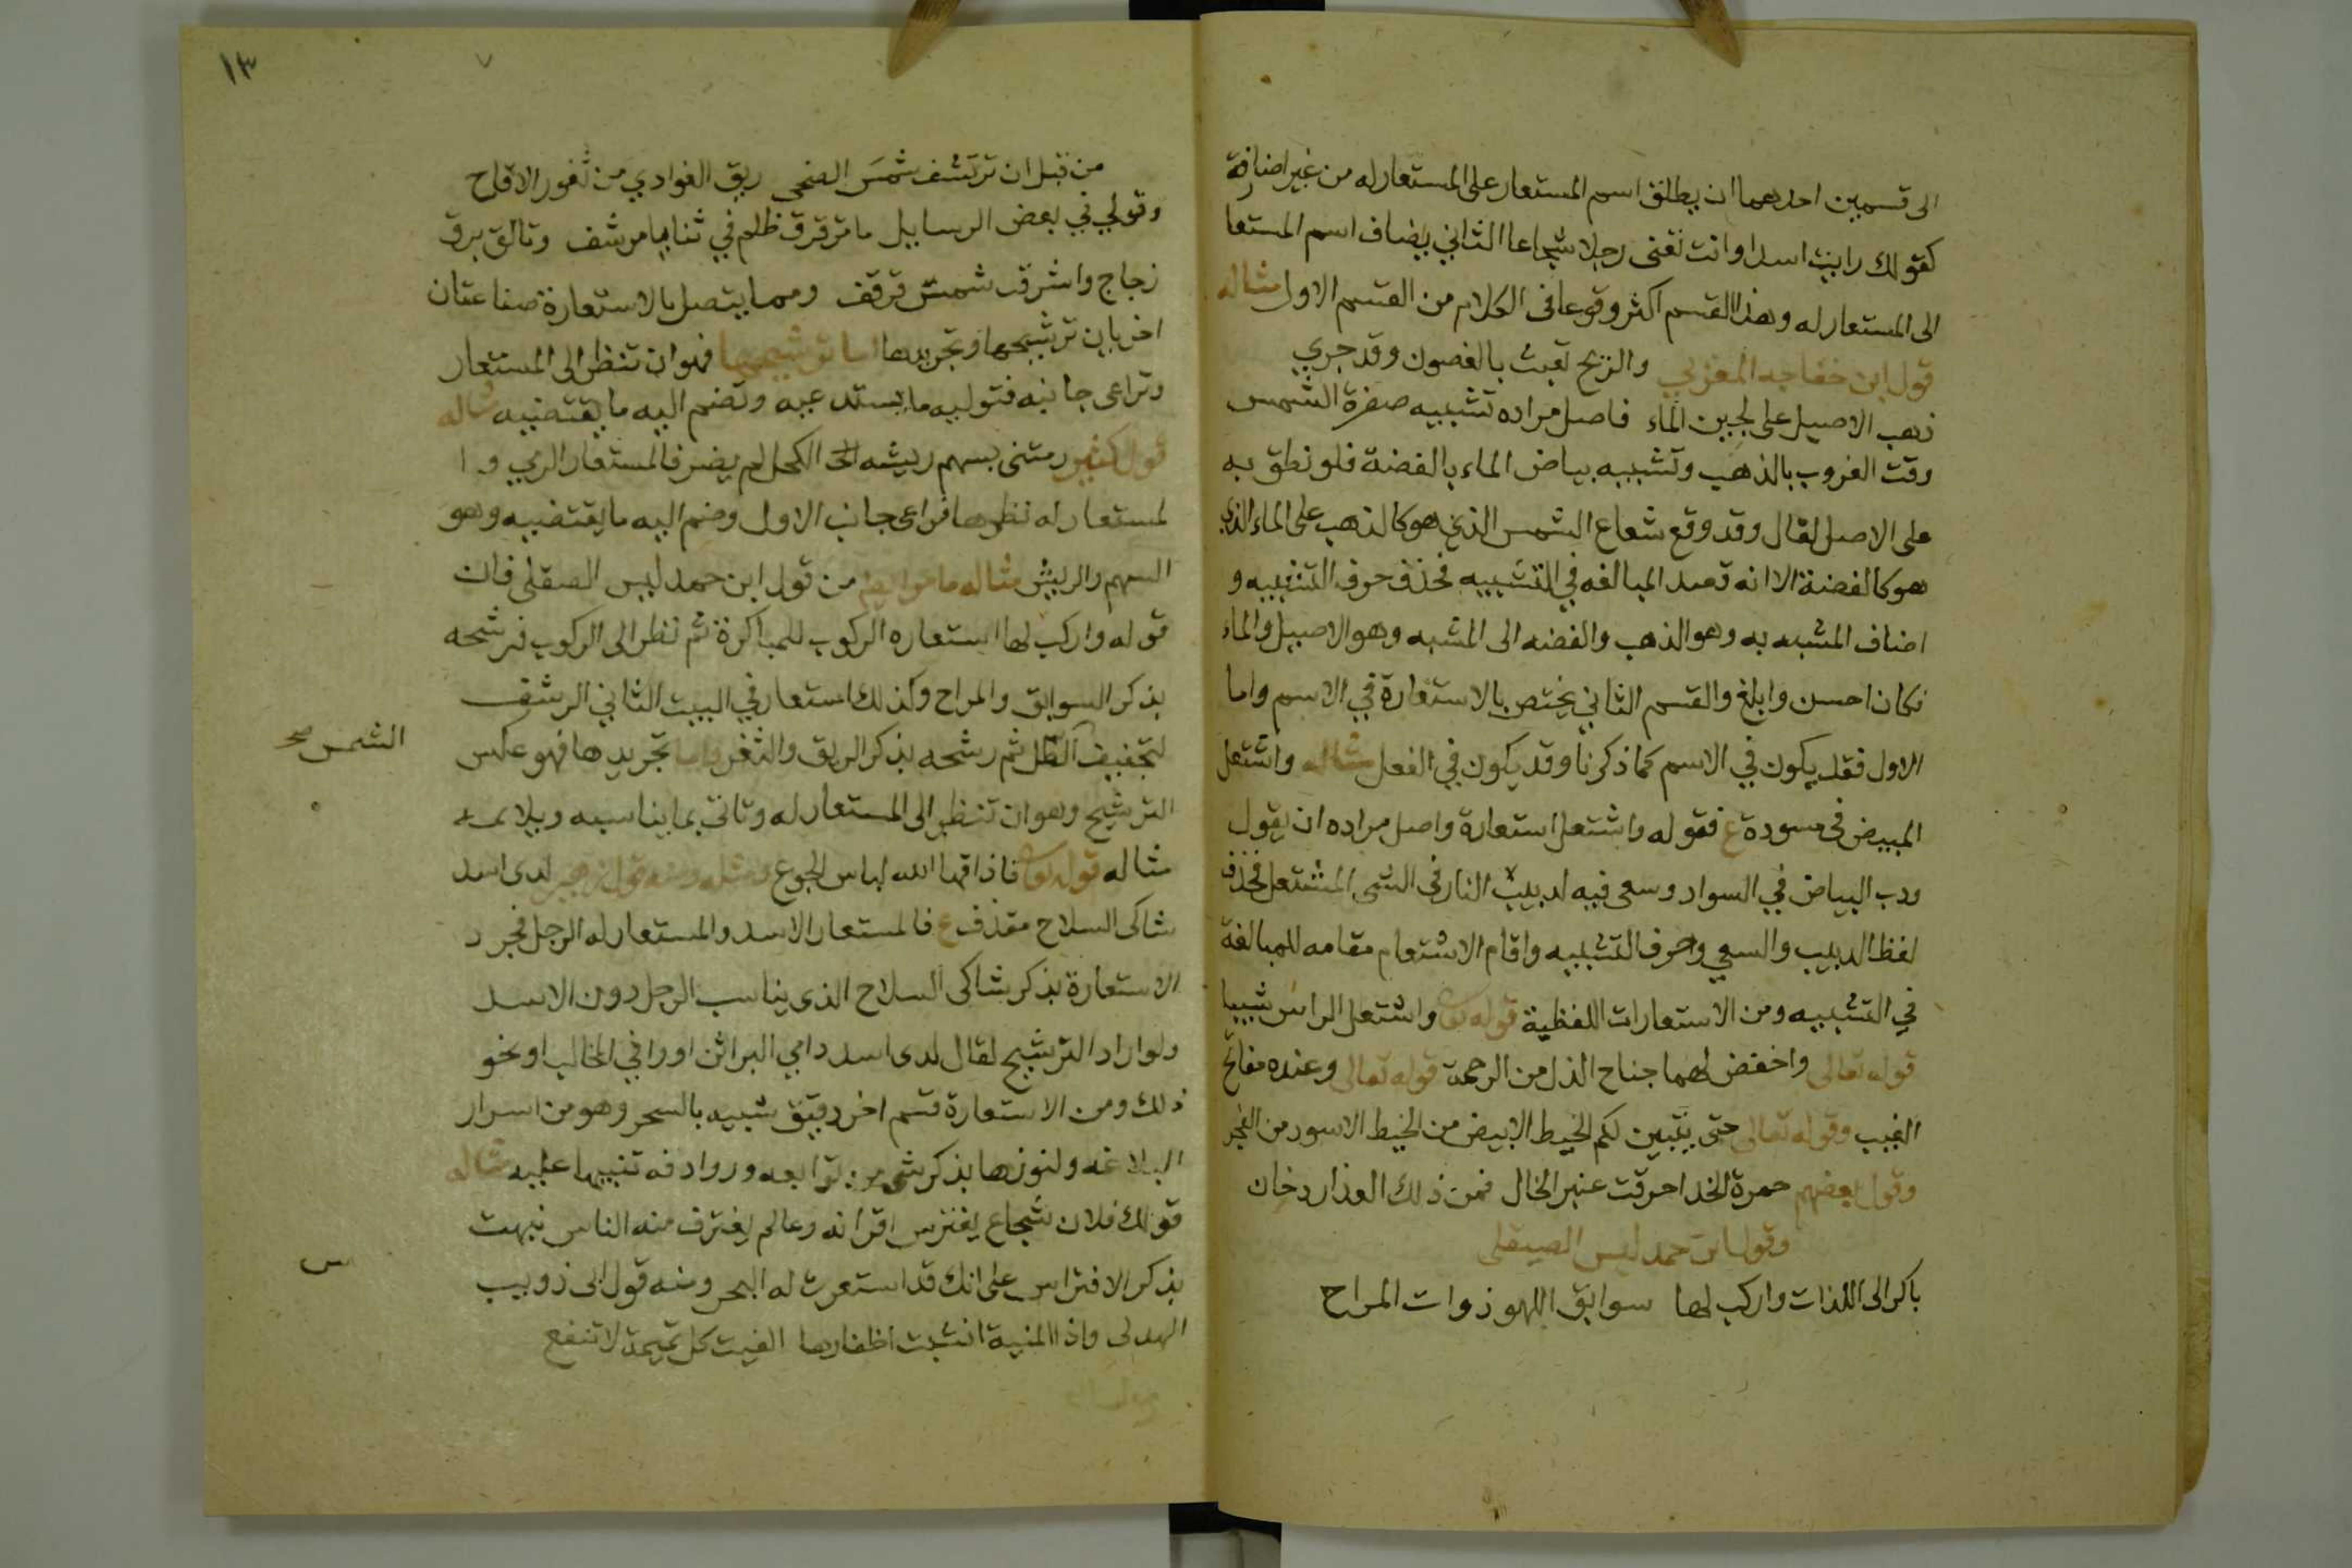 الى قسمين احدهما ان يطلق اسم المستعار على المستعار له من غير اضافة
كقولك رايت اسدا وانت تعنى رجلا شجاعا الثاني يضاف اسم المستعا
الى المستعار له وهذا القسم اكثر وقوعا فى الكلام من القسم الاول مثاله
قول ابن خفاجه المغربي والريح تعبث بالغصون وقد جري
ذهب الاصيل على لجين الماء فاصل مراده تشبيه صفرة الشمس
وقت الغروب بالذهب وتشبيه بياض الماء بالفضة فلو نطق به
على الاصل لقال وقد وقع شعاع الشمس الذي هو كالذهب على الماء الذي
هو كالفضة الا انه قصد المبالغه في التشبيه فحذف حرف التشبيه و
اضاف المشبه به وهو الذهب والفضه الى المشبه وهو الاصيل والماء
فكان احسن وابلغ والقسم الثاني يختص بالاستعارة في الاسم واما
الاول فقد يكون في الاسم كما ذكرنا وقد يكون في الفعل مثاله واشتعل
المبيض فى مسودة ع فقوله واشتعل استعارة واصل مراده ان يقول
ودب البياض في السواد وسعى فيه لدبيب النار فى الشى المشتعل فحذف
لفظ الدبيب والسعي وحرف التشبيه واقام الاشتعام مقامه للمبالغة
في التشبيه ومن الاستعارات اللفظية قوله تعا واشتعل الراس شيبا
قوله تعالى واخفض لهما جناح الذل من الرحمة قوله تعالى وعنده مفاتح
الغيب وقوله تعالى حتى يتبين لكم الخيط الابيض من الخيط الاسود من الفجر
وقول بعضهم حمرة الخد احرقت عنبر الخال فمن ذلك العذار دخان
وقول ابن حمد ليس الصيقلى
باكر الى اللذات واركب لها سوابق اللهو ذوات المراح
١٣
من قبل ان ترتشف شمس الضحى ريق الغوادي من ثغور الاقاح
وقولي في بعض الرسايل ما ترقرق ظلم في ثنايا مرشف وتالق برق
زجاج واشرقت شمس قرقف ومما يتصل بالاستعارة صناعتان
اخريان ترشيحها وتجريدها اما ترشيحها فهو ان تنظر الى المستعار
وتراعى جانبه فتوليه ما يستدعيه وتضم اليه ما يقتضيه مثاله
قول كثير رمتنى بسهم ريشه الكحل لم يضر فالمستعار الرمي و ا
لمستعار له نظرها فراعى جانب الاول وضم اليه ما يقتضيه وهو
السهم والريش مثاله ما من قول ابن حمد ليس الصقلى فان
قوله واركب لها استعاره الركوب للمباكرة ثم نظر الى الركوب فرشحه
بذكر السوابق والمراح وكذلك استعار في البيت الثاني الرشف
لتجفيف الطل ثم رشحه بذكر الريق والثغر واما تجريدها فهو عكس
الشمس صح
الترشيح وهو ان تنظر الى المستعار له وتاتى بما يناسبه ويلايمه
مثاله قوله تعا فاذاقها الله لباس الجوع ومثله ومنه قول زهير لدى اسد
شاكى السلاح مقذف ع فالمستعار الاسد والمستعار له الرجل فجرد
الاستعارة بذكر شاكى السلاح الذى يناسب الرجل دون الاسد
ولو اراد الترشيح لقال لدى اسد دامي البراثن او وافي المخالب او نحو
ذلك ومن الاستعارة قسم اخر دقيق شبيه بالسحر وهو من اسرار
البلاغه ولنوزها بذكر شى من توابعه وروادفه تنبيها عليه مثاله
قولك فلان شجاع يفترس اقرانه وعالم يغترف منه الناس نبهت
بذكر الافتراس على انك قد استعرت له البحر ومنه قول ابى ذويب
الهدلى واذا المنية انشبت اظفارها الفيت كل تميمة لا تنفع